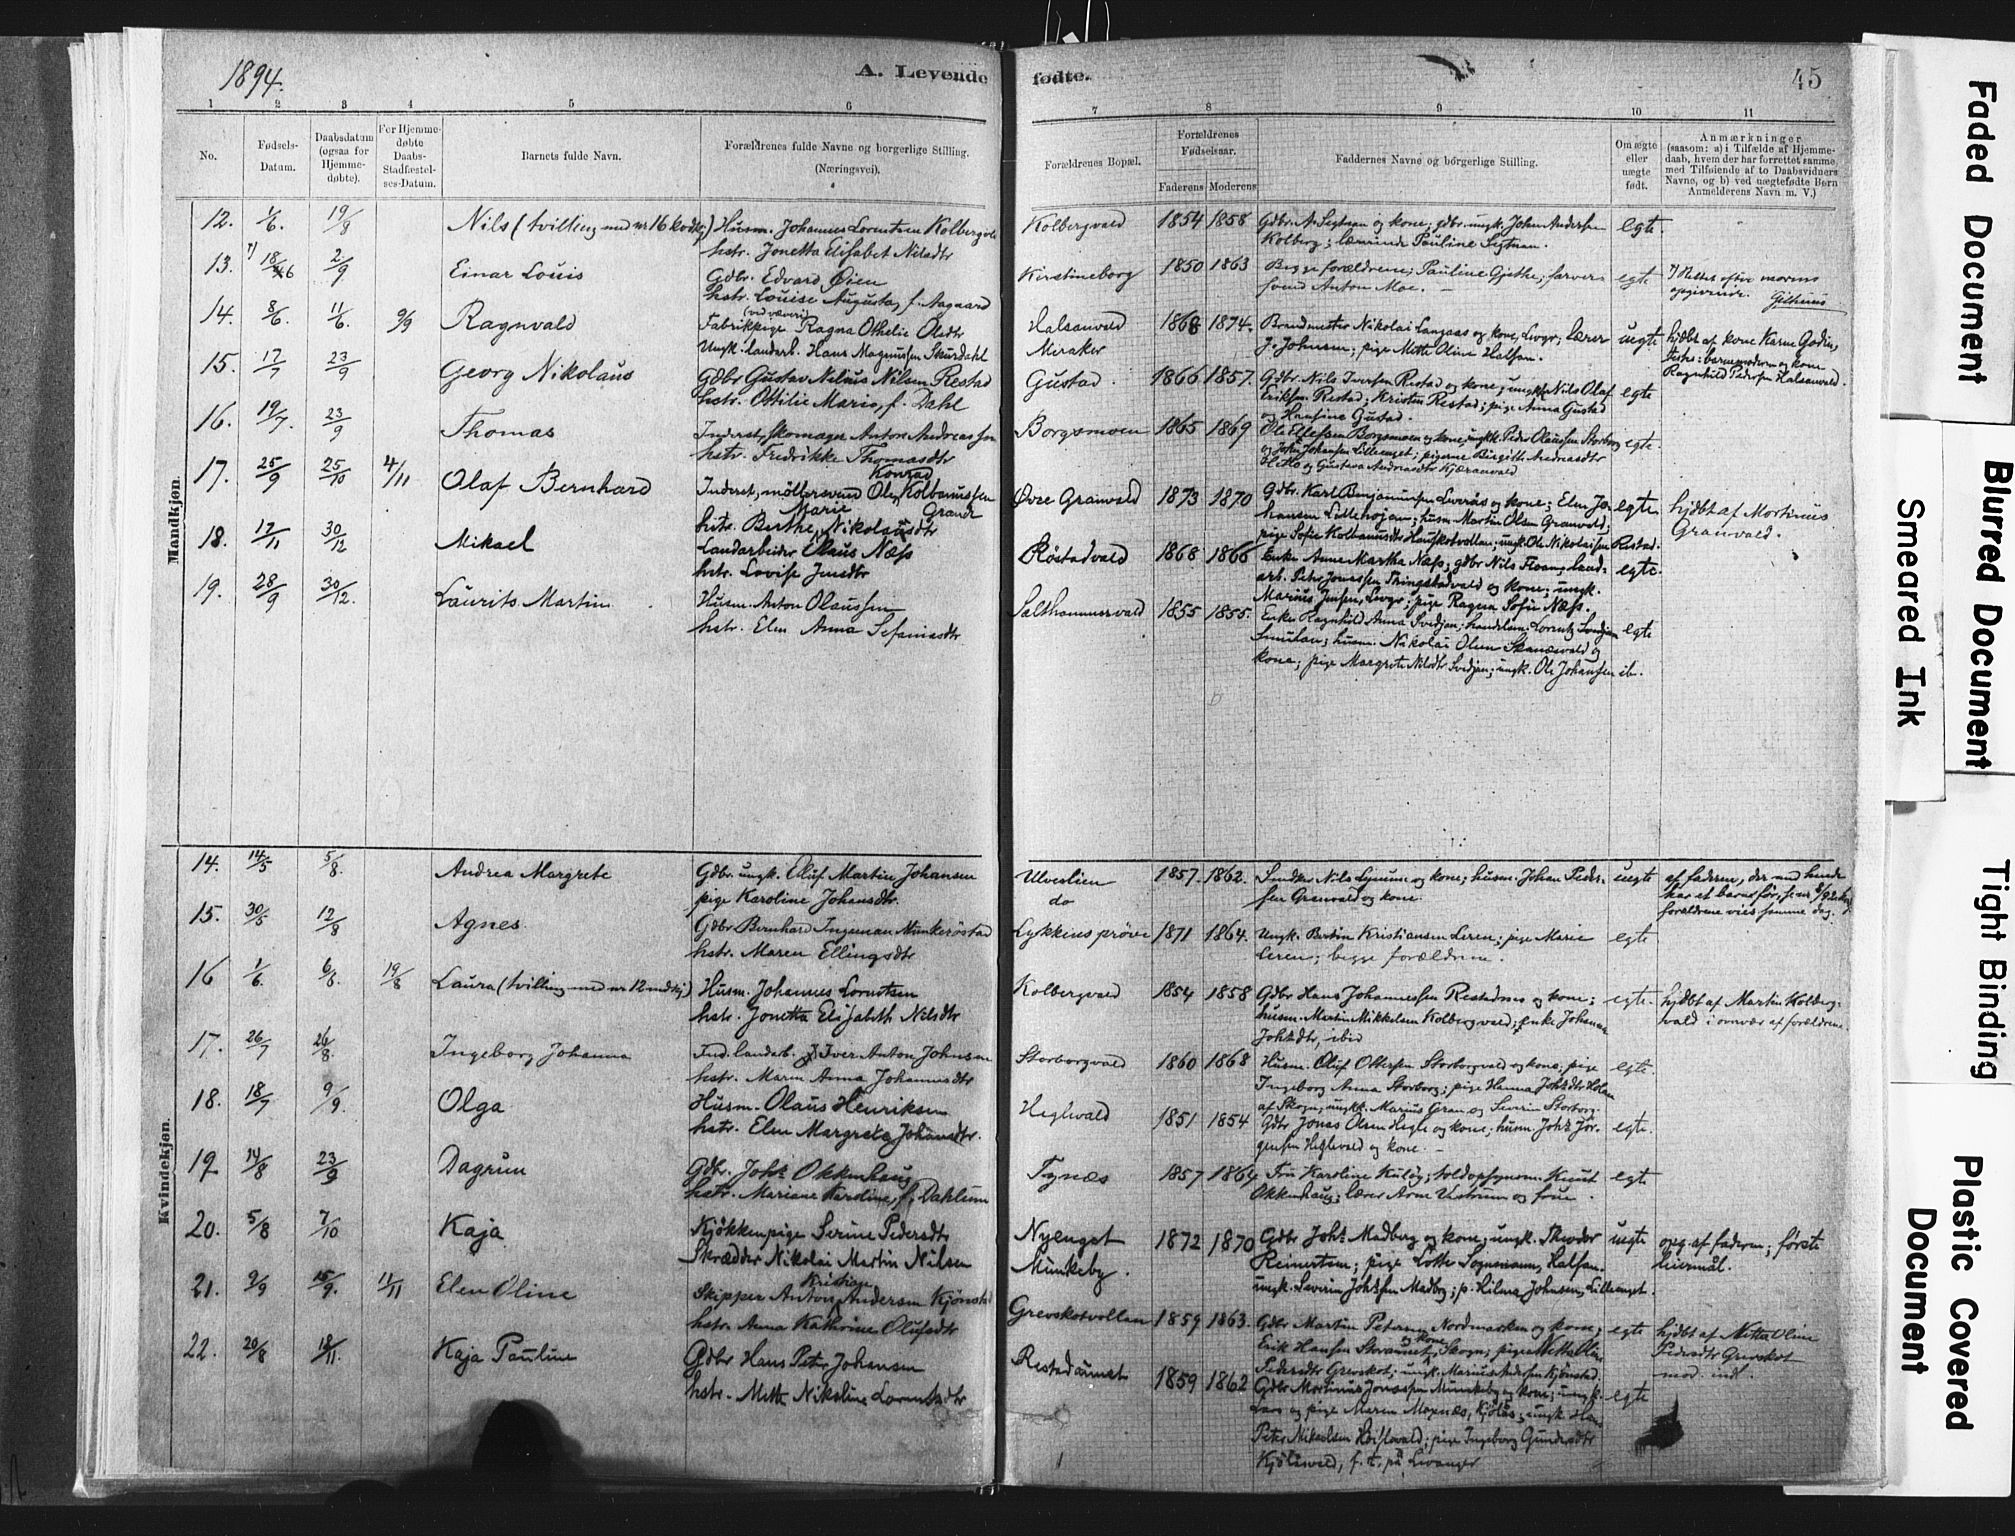 1894.
A. Levende
fødte.
45
1 2 3 4 5 6
7 8 9 10 11
No.
Fødsels-
Datum.
Daabsdatum
(ogsaa for
Hjemme-
døbte).
For Hjemme-
døbte
Daabs-
Stadfæstel-
ses-Datum.
Barnets fulde Navn.
Forældrenes fulde Navne og borgerlige Stilling.
(Næringsvei).
Forældrenes Bopæl.
Forældrenes
Fødselsaar.
Faderens Moderens
Faddernes Navne og borgerlige Stilling.
Om ægte
eller
uægte
født.
Anmærkninger
(saasom: a) i Tilfælde af Hjemme-
daab, hvem der har forrettet samme,
med Tilføiende af to Daabsvidners
Navne, og b) ved uægtefødte Børn
Anmelderens Navn m. V.)
Mandkjøn.
12. 1/6. 19/8 Nils (tvilling med nr 16 kvdkj) Husm. Johannes Lorentsen Kolbergvald
hstr. Jonetta Elisabet Nilsdtr
Kolbergvald 1854 1858 Gdbr. A. Segtnan og kone; gdbr. ungk. John Andersen
Kolberg; lærerinde Pauline Segtnan.
egte.
13. 18/6 2/9 Einar Louis Gdbr. Edvard Øien
hstr. Louise Augusta, f. Aagaard
Kirstineborg 1850 1863 Begge forældrene; Pauline Gjethe; farver-
svend Anton Moe. —
egte
14. 8/6. 11/6. 9/9 Ragnvald Fabrikpige (ved væveri) Ragna Othelie Olsdtr
Ungk. landarb. Hans Magnussen Skurdahl
Halsanvald
Meraker
1868 1874. Brandmester Nikolai Langaas og kone, Levgr; lærer
J. Johnsen; pige Mette Oline Halsan.
uegte
hjdbt af kone Karen
Ragnhild Pedersen Halsanvald.
15. 17/7 23/9 Georg Nikolaus Gdbr Gustav Nelius Nilsen Restad
hstr. Ottilie Marie, f. Dahl
Gustad. 1866 1857. Gdbr. Nils Iversen Restad og kone; ungkk Nils Olaf
Eriksen Restad; Kristen Restad; pige Anna Gustad
og Hansine Gustad.
egte
16. 19/7. 23/9 Thomas Inderst, skomager Anton Andreassen
hstr. Fredrikke Thomasdtr
Borgsmoen 1865 1869 Ole Ellefsen Borgsmoen og kone; ungkk. Peder Olaussen Storborg
og John Johansen Lilleenget; pigerne Birgitte Andreasdtr
og Gustava Andreasdtr Kjæranvald
egte.
17. 25/9 25/10 4/11 Olaf Bernhard Inderst, møllersvend Ole Konrad Kolbanussen
Granli
hstr. Berthe Marie Nikolausdtr
Øvre Granvald 1873 1870 Gdbr. Karl Benjaminsen Leveraas og kone; Elen Jo-
hansen Lillehojem; husm. Martin Olsen Granvold;
pige Sofie Kolbanusdtr Haugskotvollan; ungk. Ole Nikolaisen Restad.
egte.
hjdbt af Mortinus
Granvald.
18. 17/11 30/12 Mikael Landarbeider Olaus Næss
hstr. Lovise Jensdtr
Røstadvald 1868 1866 Enke Anne Martha Næss; gdbr Nils Floan; land-
arb. Peter Jonassen Thingstadvald og kone; ungk.
Marius Jensen, Levgr; pige Ragna Sofie Næss.
egte.
19. 28/9 30/12. Laurits Martin Husm. Anton Olaussen
hstr. Elen Anna Sefaniasdtr
Salthammersvald 1855 1855. Enke Ragnhild Anna Svedjan; handelsm. Lorents Svedjan
husm. Nikolai Olsen Skanesvald og
kone; pige Margrete Nilsdtr Svedjan; ungk. Ole Johansen ib.
egte
Kvindekjøn.
14. 14/5 5/8. Andrea Margrete Gdbr. ungk. Oluf Martin Johansen
pige Karoline Johansdtr.
Ulveslien
do
1857. 1862. Smdkr Nils Lynum og kone; husm. Johan Peder-
sen Granvald og kone.
uegte
af faderen, der med hende
har et barn før,
forældrene vies samme dag.
15. 30/5 12/8 Agnes. Gdbr Bernhard Ingeman Munkerøstad
hstr. Maren Ellingsdtr
Lykkensprøve 1871 1864. Ungk. Bertin Kristiansen Leren; pige Marie
Leren; begge forældrene.
egte
16 1/6. 6/8. 19/8 Laura (tvilling med nr 12 mdkj) Husm. Johannes Lorentsen
hstr. Jonetta Elisabeth Nilsdtr
Kolbergvald 1854 1858 Gdbr Hans Johannessen Restadnes og kone;
husm. Martin Mikkelsen Kolbergvald; Enke Johanna
Johsdtr, ibid
egte.
hjdbt af Martin Kolberg-
vald i overvær af forældrene.
17. 26/7 26/8. Ingeborg Johanna Ind. landarb. Iver Anton Johnsen
hstr. Maren Anna Johannesdtr
Storborgvald 1860 1868 Husm. Oluf Ottersen Storborgvald og kone; pige
Ingeborg Anna Storborg; pige Hanna Johsdtr Holan
af Skogn; ungkk. Marius Gran og Severin Storborg.
egte.
18. 18/7 9/9. Olga Husm. Olaus Henriksen
hstr. Elen Margreta Johansdtr.
Heglvald 1851 1854 Gdbr Jonas Olsen Hegle og kone; husm. Johs Jør-
gensen Heglevald og kone. —
egte.
19 14/8 23/9 Dagrun Gdbr. Johs Okkenhaug
hstr. Mariane Karoline, f. Dahlum
Tynæs 1857 1864 Fru Karoline Kuløy; toldopsynsm. Knut
Okkenhaug; lærer Arne Vestrum og frue.
egte
20. 5/8 7/10 Kaja Kjøkkenpige Serine Pedersdtr
Skrædder Nikolai Martin Nilsen
Nyenget
Munkeby.
1872 1870 Gdbr Johs Madberg og kone; ungk. Theodor
Reinertsen; pige Lotte Sognemann, Halsan.
ungk. Severin Johssen Madbg; p. Hilma Johnsen, Lilleenget.
uegte
opg. af faderen; første
leiermål.
21. 9/9 15/9. 11/11 Elen Oline Skipper Anton Kristian Andersen Kjønstad
hstr. Anna Kathrine Olufsdtr
Grevskotvollen 1859 1863. Gdbr Martin Petersen Nordmarken og kone;
Erik Hansen og kone, Skogn; pige Netta Oline
Pedersdtr Grevskot; ungk. Marius Andersen Kjønstad.
egte
hjdbt af Netta Oline
Pedersdtr Grevskot
22. 20/8 18/11. Kaja Pauline Gdbr Hans Peter Johansen
hstr. Mette Nikoline Lorentsdtr
Restadaunet 1859 1862 Gdbr Mortinus Jonassen Munkeby og kone; ungk.
Lars og pige Maren Mosnæs, Kjølås; ungk Hans
Peter Mikaelsen Heislevald; pige Ingeborg Gundersdtr
Kjølåsvald, f. t. på Levanger
egte
Faded Document
Blurred Document
Smeared Ink
Tight Binding
Plastic Covered
Document